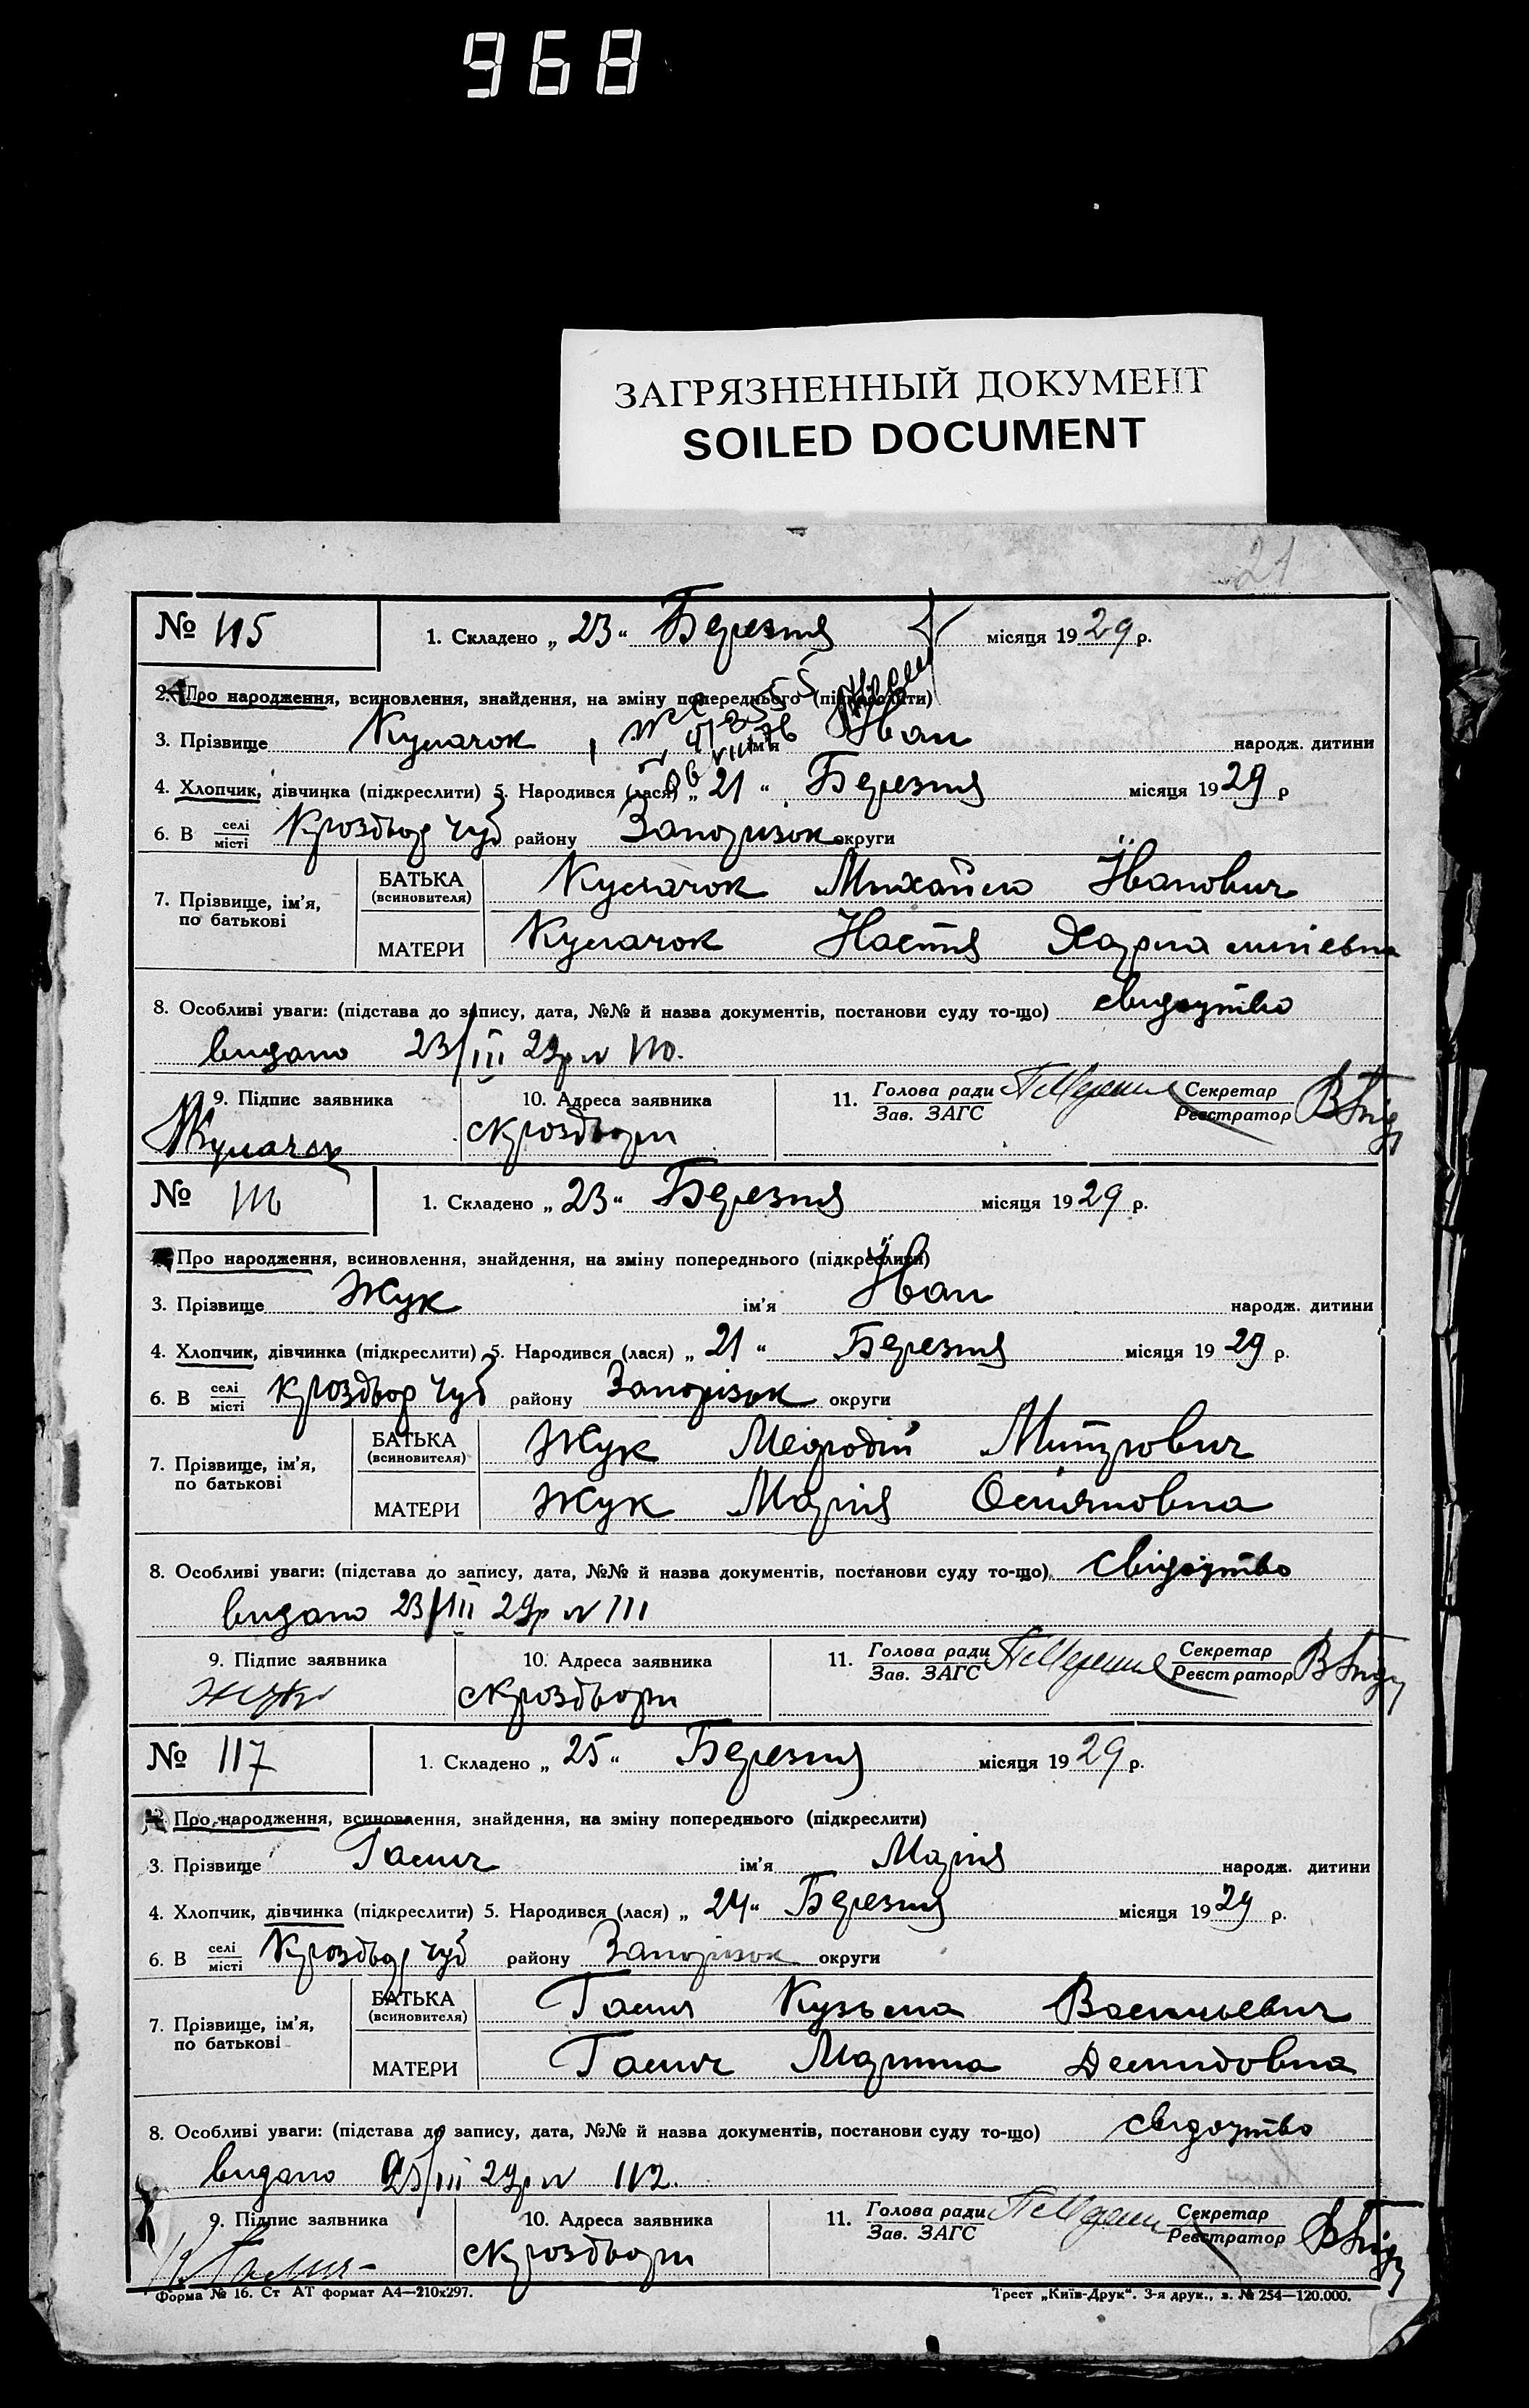 968
ЗАГРЯЗНЕННЫЙ ДОКУМЕНТ
SOILED DOCUMENT
21
№ 115 1. Складено „ 23 “ Березня місяця 1929 р.
2. Про народження, всиновлення, знайдення, на зміну попереднього (підкреслити)
3. Прізвище Кулачок ім'я Іван народж. дитини
4. Хлопчик, дівчинка (підкреслити) 5. Народився (лася) „ 21 “ Березня місяця 1929 р
6. В селі місті Кроздвор Чуб району Запоризок округи
7. Прізвище, ім'я, по батькові
БАТЬКА (всиновителя) Кулачок Михайло Їванович
МАТЕРИ Кулачок Настя
8. Особливі уваги: (підстава до запису, дата, №№ й назва документів, постанови суду то-що)
видано 23/III 29р N 110.
9. Підпис заявника 10. Адреса заявника 11. Голова ради Зав. ЗАГС Секретар Реєстратор
Кулачок с Кроздвори
№ 116 1. Складено „ 23 “ Березня місяця 1929 р.
Про народження, всиновлення, знайдення, на зміну попереднього (підкреслити)
3. Прізвище Жук ім'я Їван народж. дитини
4. Хлопчик, дівчинка (підкреслити) 5. Народився (лася) „ 21 “ Березня місяця 1929 р.
6. В селі місті Кроздвор Чуб району Запорізок округи
7. Прізвище, ім'я, по батькові
БАТЬКА (всиновителя) Жук Митрович
МАТЕРИ Жук Марія
8. Особливі уваги: (підстава до запису, дата, №№ й назва документів, постанови суду то-що)
видано 23/III 29р N 111
9. Підпис заявника 10. Адреса заявника 11. Голова ради Зав. ЗАГС Секретар Реєстратор
Жук с Кроздвори
№ 117 1. Складено „ 25 “ Березня місяця 1929 р.
Про народження, всиновлення, знайдення, на зміну попереднього (підкреслити)
3. Прізвище Галич ім'я Марія народж. дитини
4. Хлопчик, дівчинка (підкреслити) 5. Народився (лася) „ 24 “ Березня місяця 1929 р.
6. В селі місті Кроздвор Чуб району Запорізок округи
7. Прізвище, ім'я, по батькові
БАТЬКА (всиновителя) Галич Кузьма Васильевич
МАТЕРИ Галич Марина Демидовна
8. Особливі уваги: (підстава до запису, дата, №№ й назва документів, постанови суду то-що)
видано 25/III 29р N 112.
9. Підпис заявника 10. Адреса заявника 11. Голова ради Зав. ЗАГС Секретар Реєстратор
К Галич с Кроздвори
Форма № 16. Ст АТ формат А4—210х297. Трест „Київ-Друк“. 3-я друк., з. № 254—120.000.